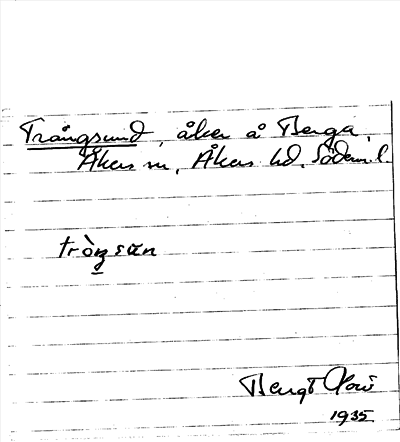 Trångsund, åker å Berga,
Åkers sn, Åkers hd. Söderml.
tròŋsun
Bengt
1935